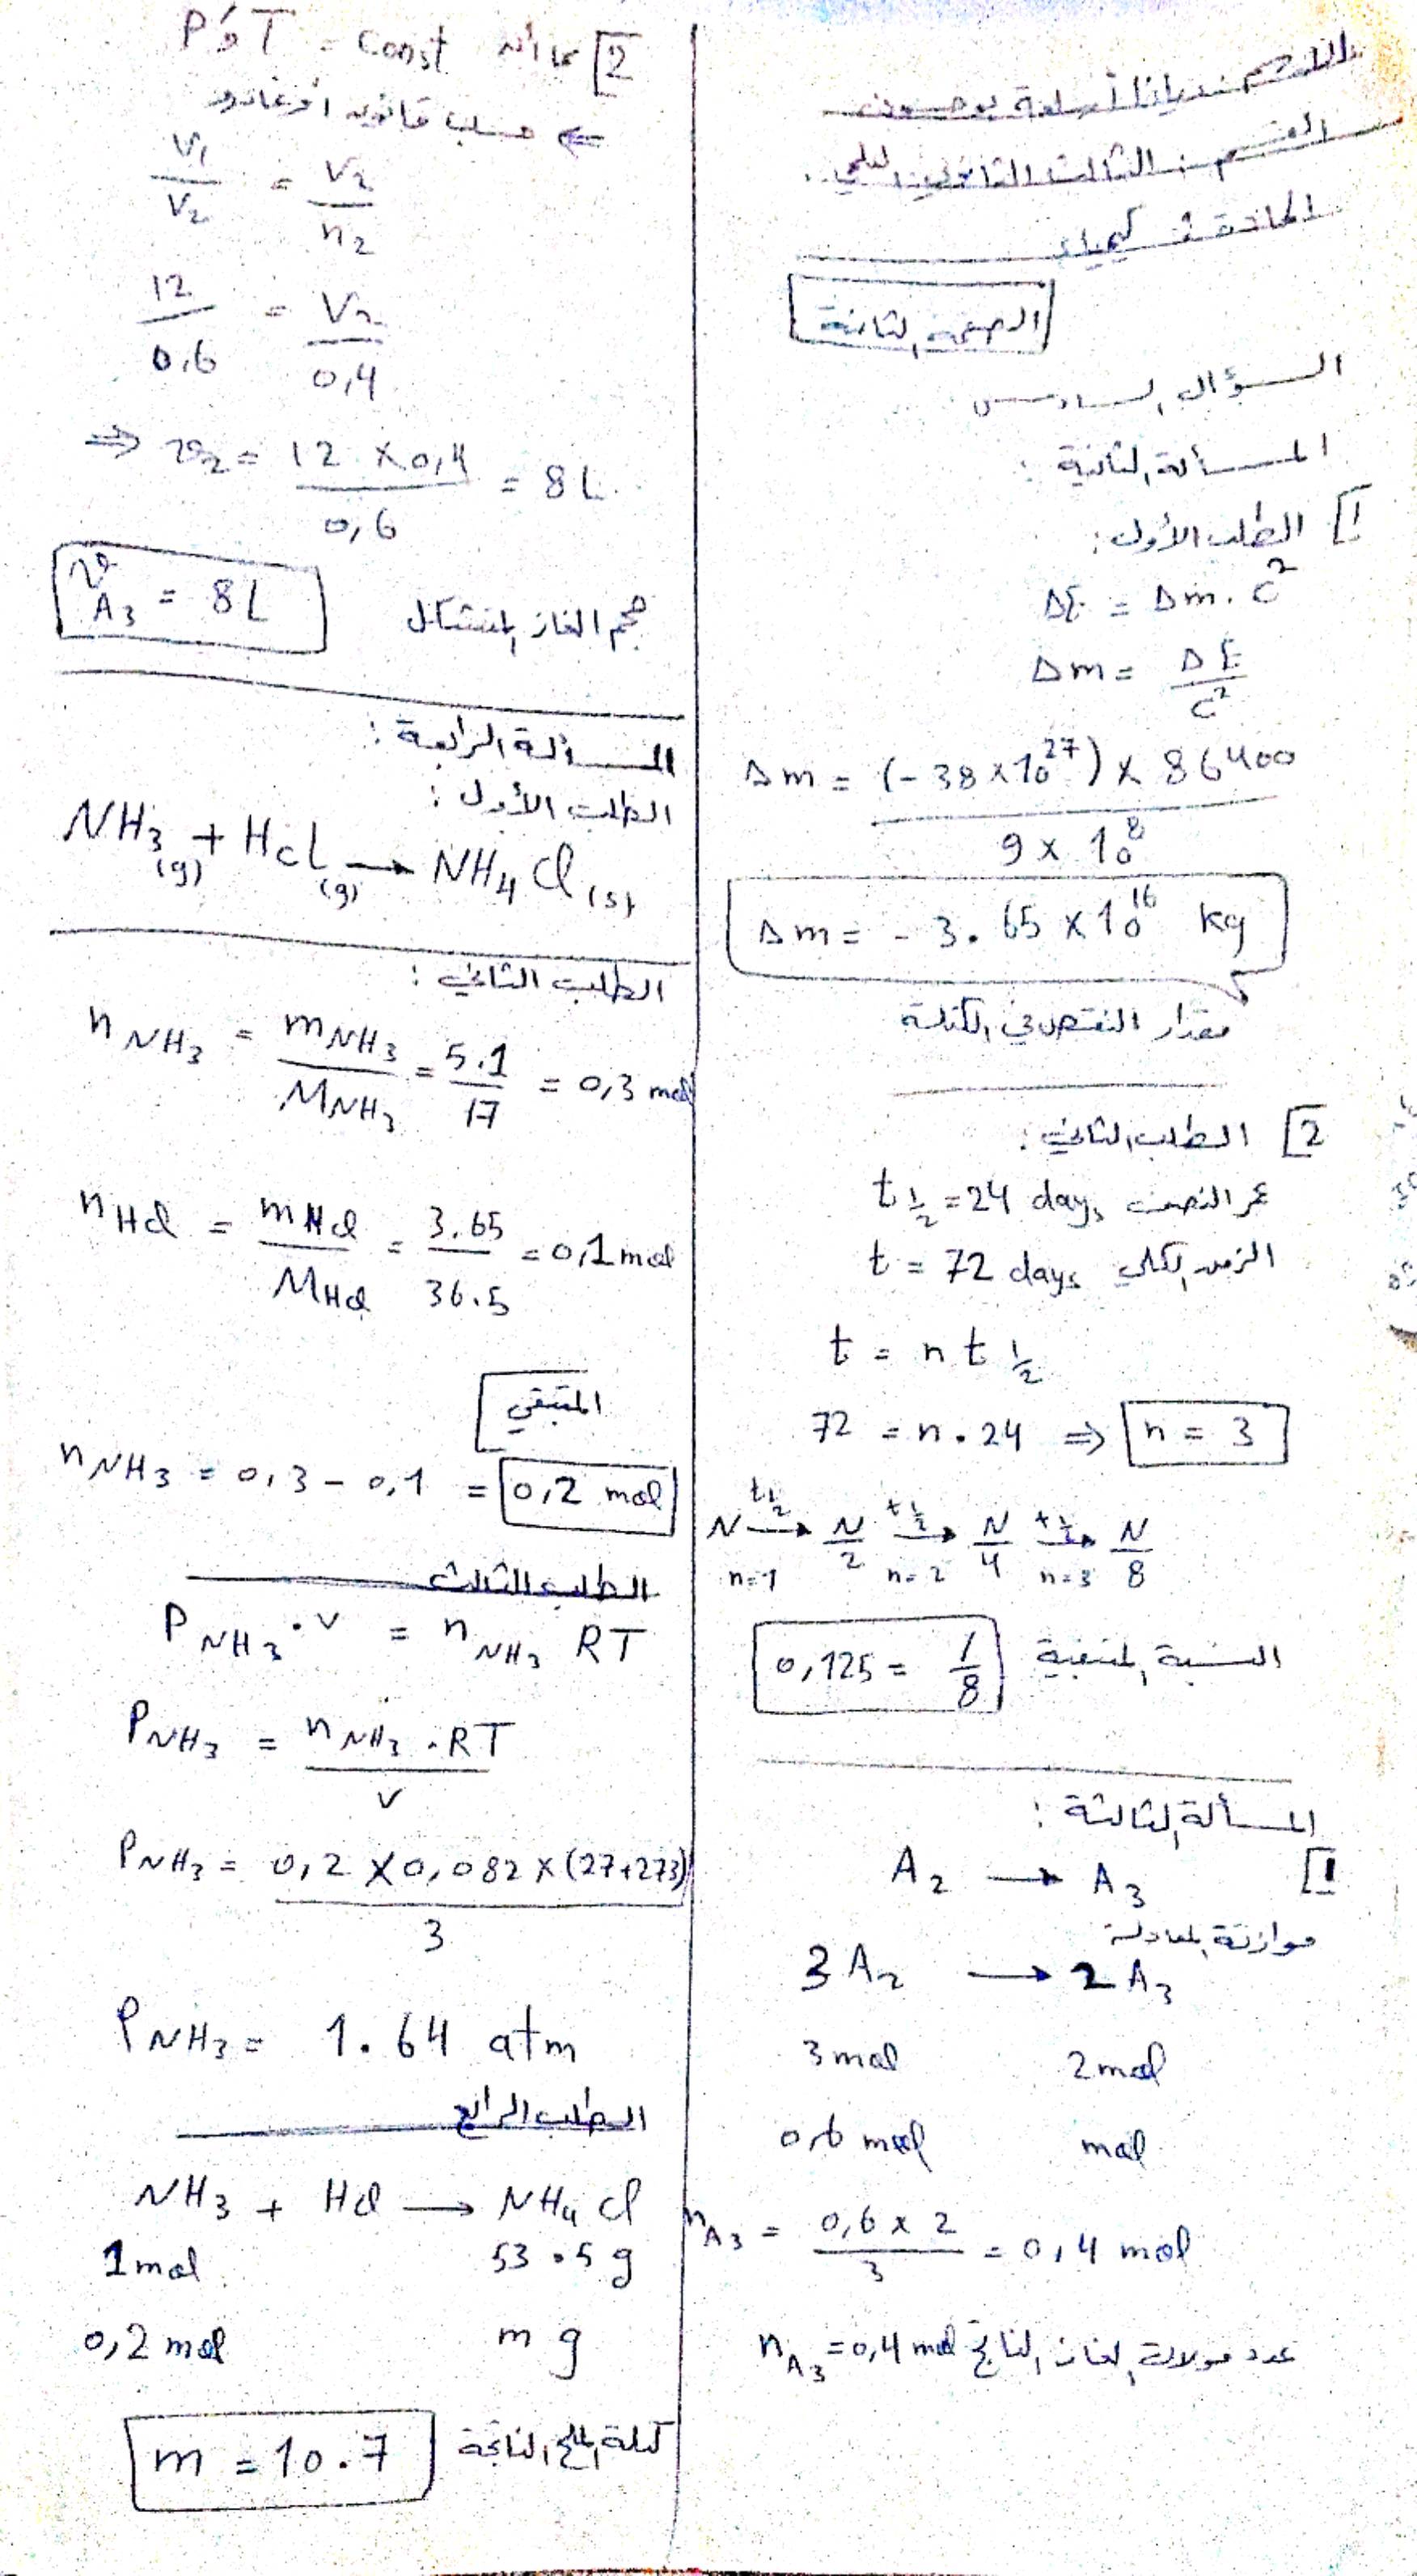 الاسم : ديانا أسامة بوحسون
القسم : الثالث الثانوي العلمي
المادة : كيمياء
الصفحة الثانية
السؤال السادس
المسألة الثانية :
1] الطلب الأول :
ΔE = Δm . C²
Δm = ΔE / C²
Δm = (-38 x 10²⁷) x 86400 / 9 x 10⁸
Δm = - 3.65 x 10¹⁶ kg
مقدار النقص في الكتلة
2] الطلب الثاني :
t½ = 24 days عمر النصف
t = 72 days الزمن الكلي
t = n t ½
72 = n . 24 ⇒ n = 3
N →(t½, n=1) N/2 →(t½, n=2) N/4 →(t½, n=3) N/8
0,125 = 1/8 النسبة المتبقية
المسألة الثالثة :
1] A₂ → A₃
موازنة المعادلة
3 A₂ → 2 A₃
3 mol 2 mol
0,6 mol mol
n A₃ = 0,6 x 2 / 3 = 0,4 mol
n A₃ = 0,4 mol عدد مولات الغاز الناتج
2] بما أن P و T = const
⇐ حسب قانون أفوغادرو
V₁ / V₂ = V₂ / n₂
12 / 0,6 = V₂ / 0,4
⇒ v₂ = 12 x 0,4 / 0,6 = 8 L
v A₃ = 8 L حجم الغاز المتشكل
المسألة الرابعة :
الطلب الأول :
NH₃(g) + HCl(g) → NH₄Cl(s)
الطلب الثاني :
n NH₃ = m NH₃ / M NH₃ = 5.1 / 17 = 0,3 mol
n HCl = m HCl / M HCl = 3.65 / 36.5 = 0,1 mol
المتبقي
n NH₃ = 0,3 - 0,1 = 0,2 mol
الطلب الثالث
P NH₃ . V = n NH₃ RT
P NH₃ = n NH₃ . RT / V
P NH₃ = 0,2 x 0,082 x (27+273) / 3
P NH₃ = 1.64 atm
الطلب الرابع
NH₃ + HCl → NH₄Cl
1 mol 53.5 g
0,2 mol m g
m = 10.7 كتلة الملح الناتجة